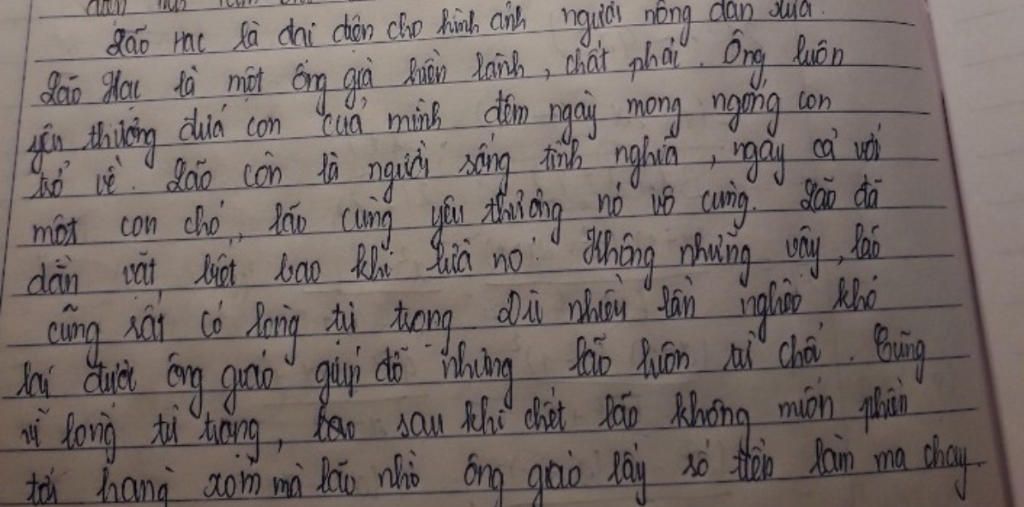 Lão Hạc là đại diện cho hình ảnh người nông dân xưa.
Lão Hạc là một ông già hiền lành, chất phác. Ông luôn
yêu thương đứa con của mình đêm ngày mong ngóng con
trở về. Lão còn là người sống tình nghĩa, ngay cả với
một con chó, lão cũng yêu thương nó vô cùng. Lão đã
dằn vặt biết bao khi lừa nó. Không những vậy, lão
cũng rất có lòng tự trọng. Dù nhiều lần nghèo khó
lại được ông giáo giúp đỡ nhưng lão luôn từ chối. Cũng
vì lòng tự trọng, sau khi chết lão không muốn phiền
tới hàng xóm mà lão nhờ ông giáo lấy số tiền làm ma chay